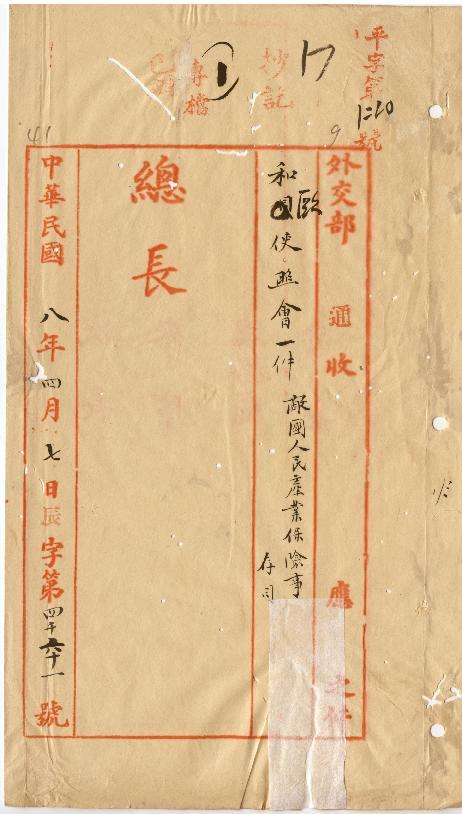 平字第1210號
抄記
專檔
1
17
41
9
外交部 通 收 應 之件
和歐使照會一件 敵國人民產業保險事
存司
總長
中華民國八年四月七日辰字第四千六十一號